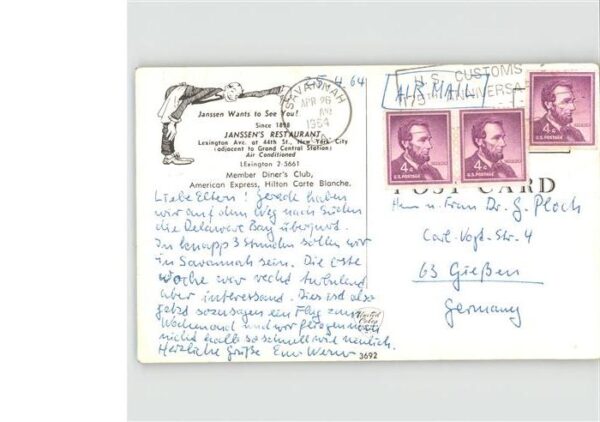 25.4.64
SAVANNAH
APR 26
AM
1964
GA
U.S. CUSTOMS
ANNIVERSA
AIR MAIL
4¢
U.S. POSTAGE
4¢
U.S. POSTAGE
4¢
U.S. POSTAGE
Janssen Wants to See You!
Since 1898
JANSSEN'S RESTAURANT
Lexington Ave. at 44th St., New York City
(adjacent to Grand Central Station)
Air Conditioned
LExington 2-5661
Member Diner's Club,
American Express, Hilton Carte Blanche.
POST CARD
Liebe Eltern! Gerade haben
wir auf dem Weg nach Süden
die Delaware Bay überquert.
In knapp 3 Stunden sollen wir
in Savannah sein. Die erste
Woche war recht turbulent
aber interessant. Dies ist also
jetzt sozusagen ein Flug zum
Wochenend und wir fliegen
nicht halb so schnell wie neulich.
Herzliche Grüße Euer Werner
Herrn u. Frau Dr. G. Ploch
Carl-Vogt-Str. 4
63 Gießen
Germany
3692